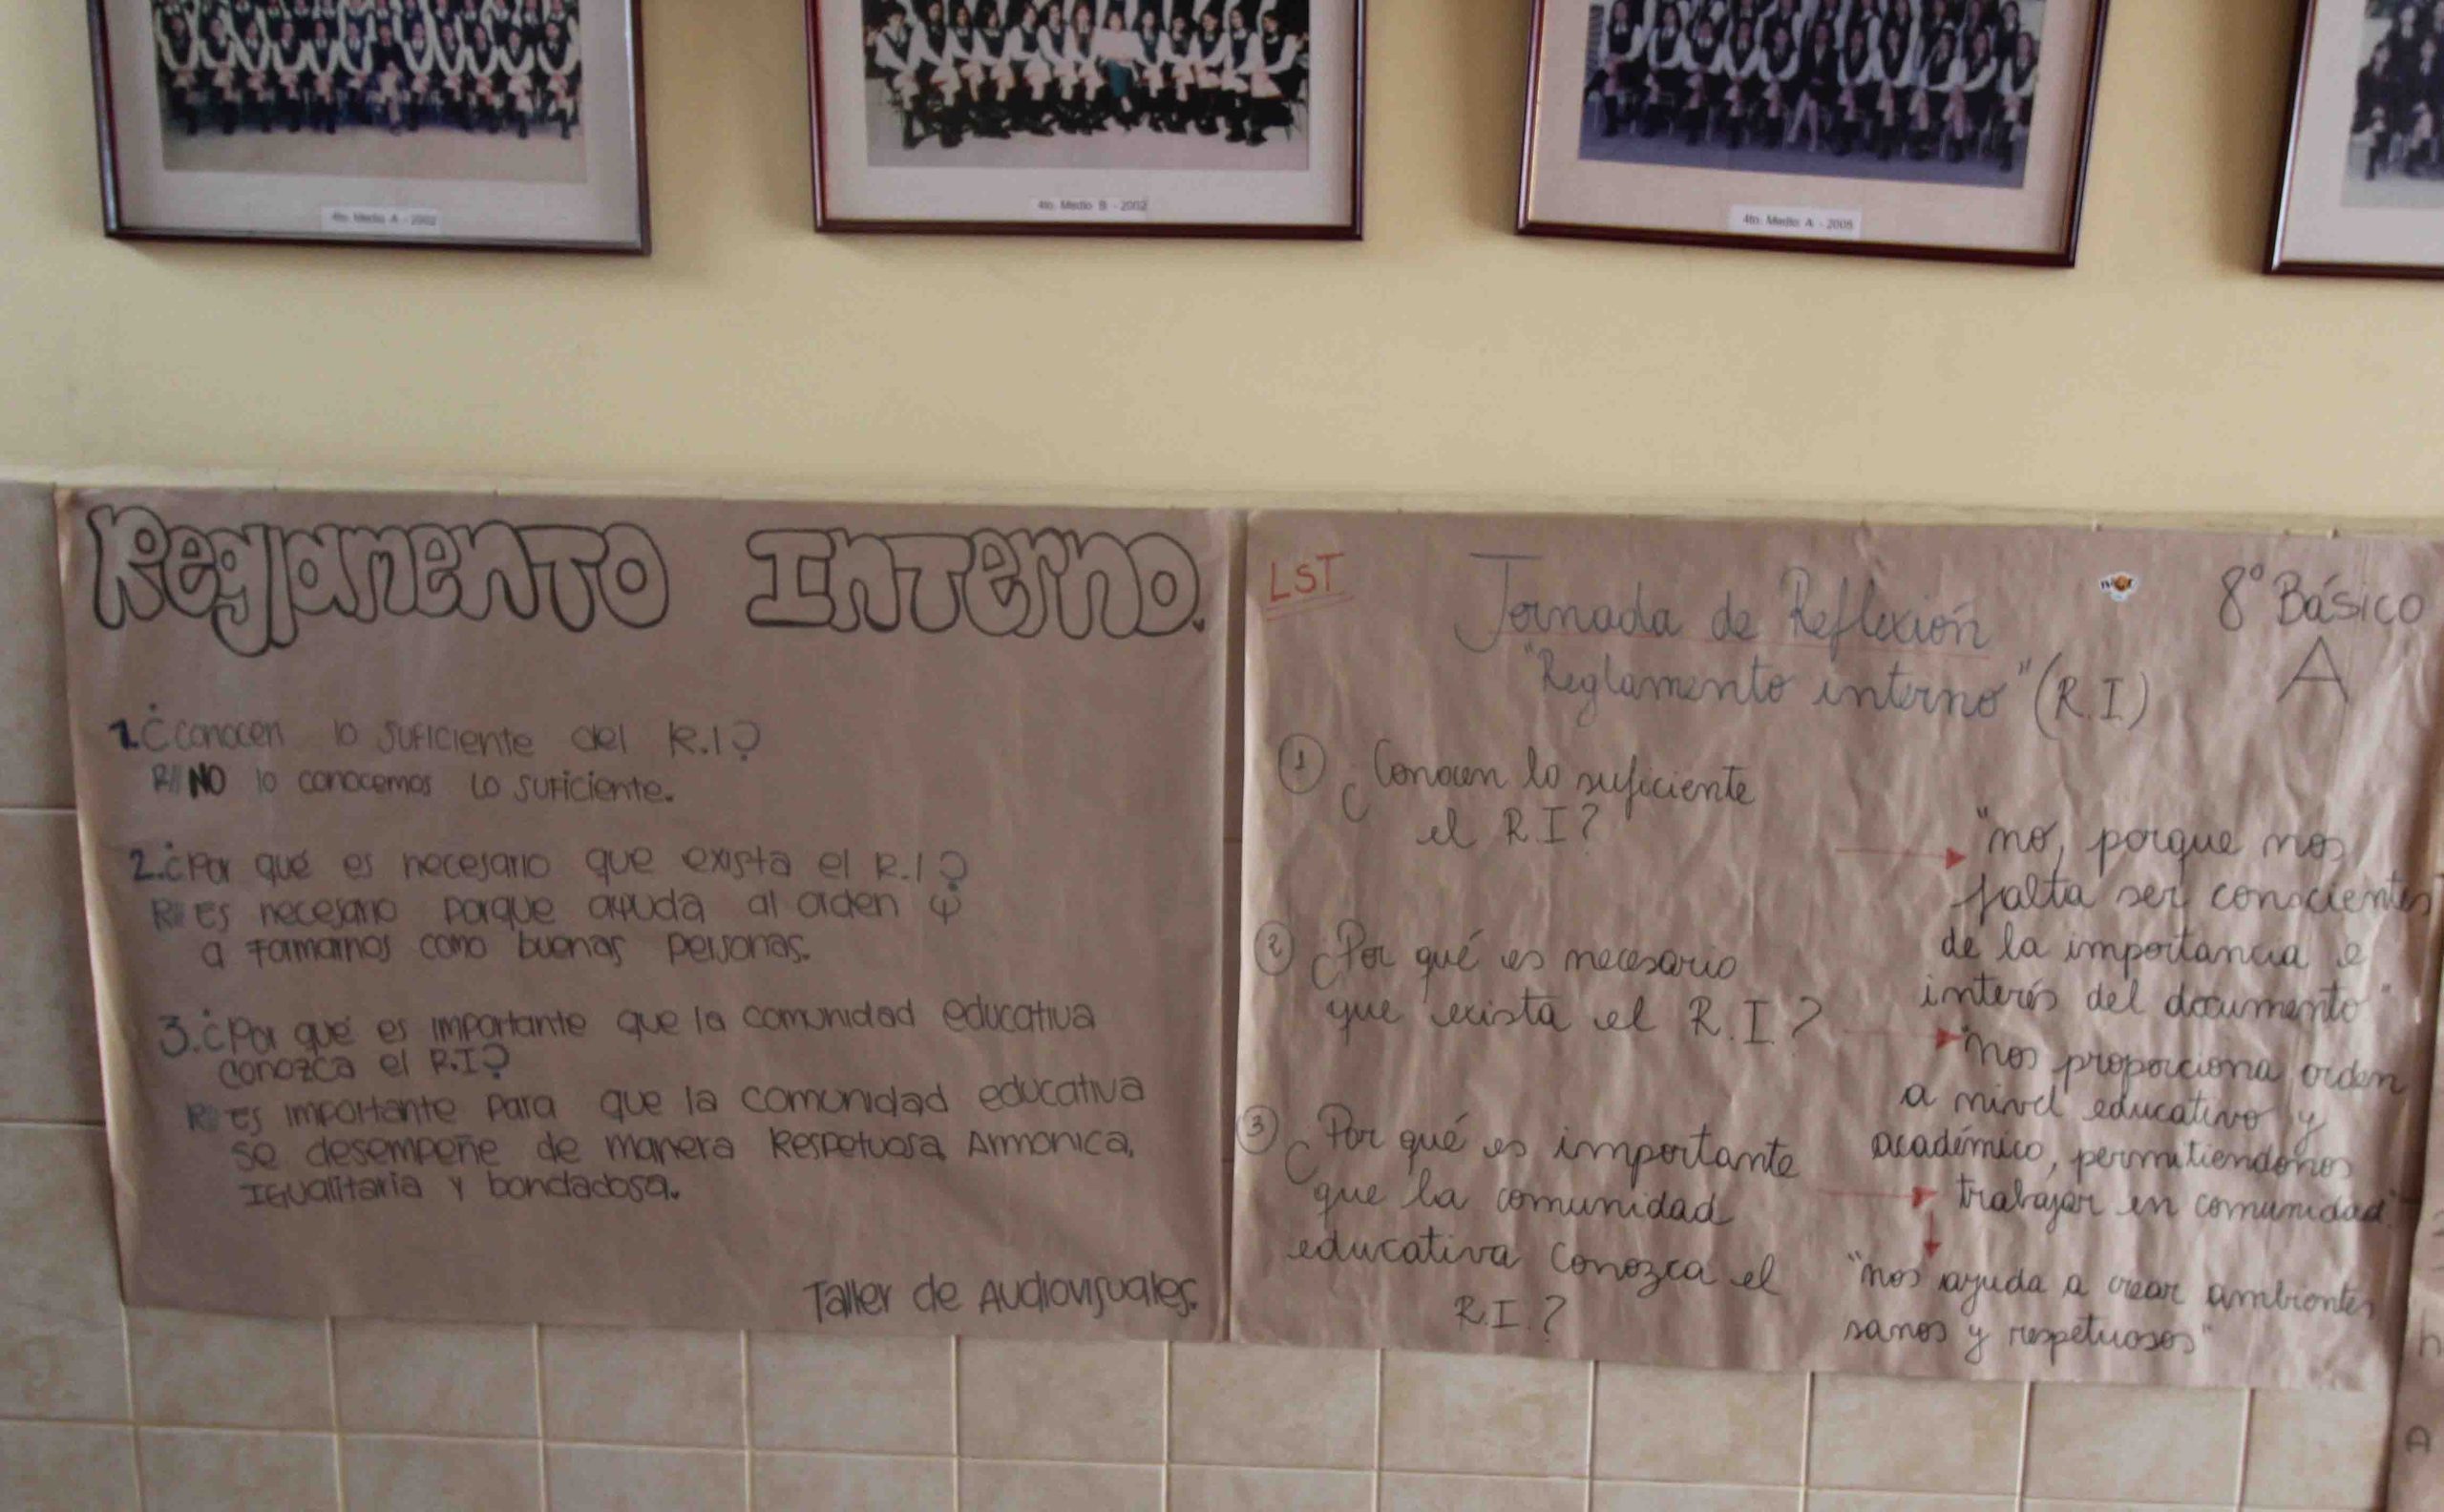 4to. Medio A - 2002
4to. Medio B - 2002
4to. Medio A - 2005
Reglamento Interno.
1.¿conocen lo suficiente del R.I?
R// NO lo conocemos lo suficiente.
2.¿Por qué es necesario que exista el R.I?
R// es necesario porque ayuda al orden y
a formarnos como buenas personas.
3.¿Por qué es importante que la comunidad educativa
conozca el R.I?
R// es importante para que la comunidad educativa
se desempeñe de manera Respetuosa, Armonica,
Igualitaria y bondadosa.
Taller de Audiovisuales.
LST
Jornada de Reflexión
"Reglamento interno" (R.I)
8° Básico
A
1 ¿Conocen lo suficiente
el R.I?
"no, porque nos
falta ser conscientes
de la importancia e
interés del documento"
2 ¿Por qué es necesario
que exista el R.I.?
"nos proporciona orden
a nivel educativo y
académico, permitiendonos
trabajar en comunidad"
3 ¿Por qué es importante
que la comunidad
educativa conozca el
R.I.?
"nos ayuda a crear ambientes
sanos y respetuosos"